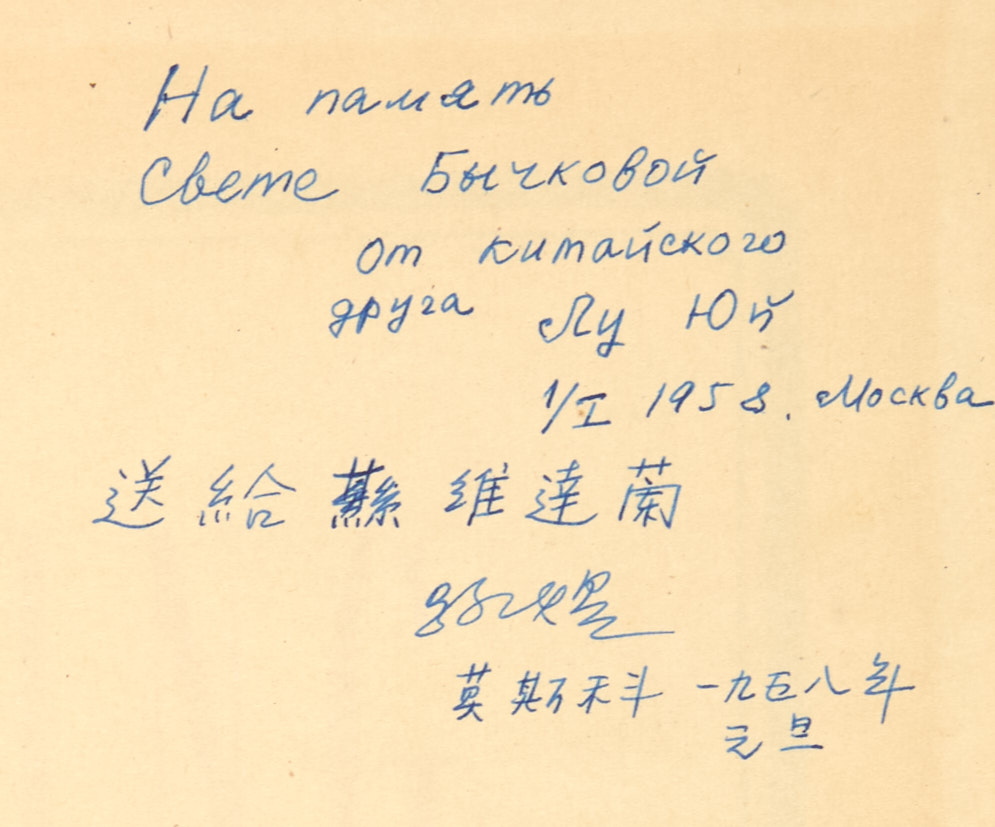 На память
Свете Бычковой
от китайского
друга Лу Юй
1/I 1958. Москва
送給 維達蘭
莫斯科 一九五八年
元旦